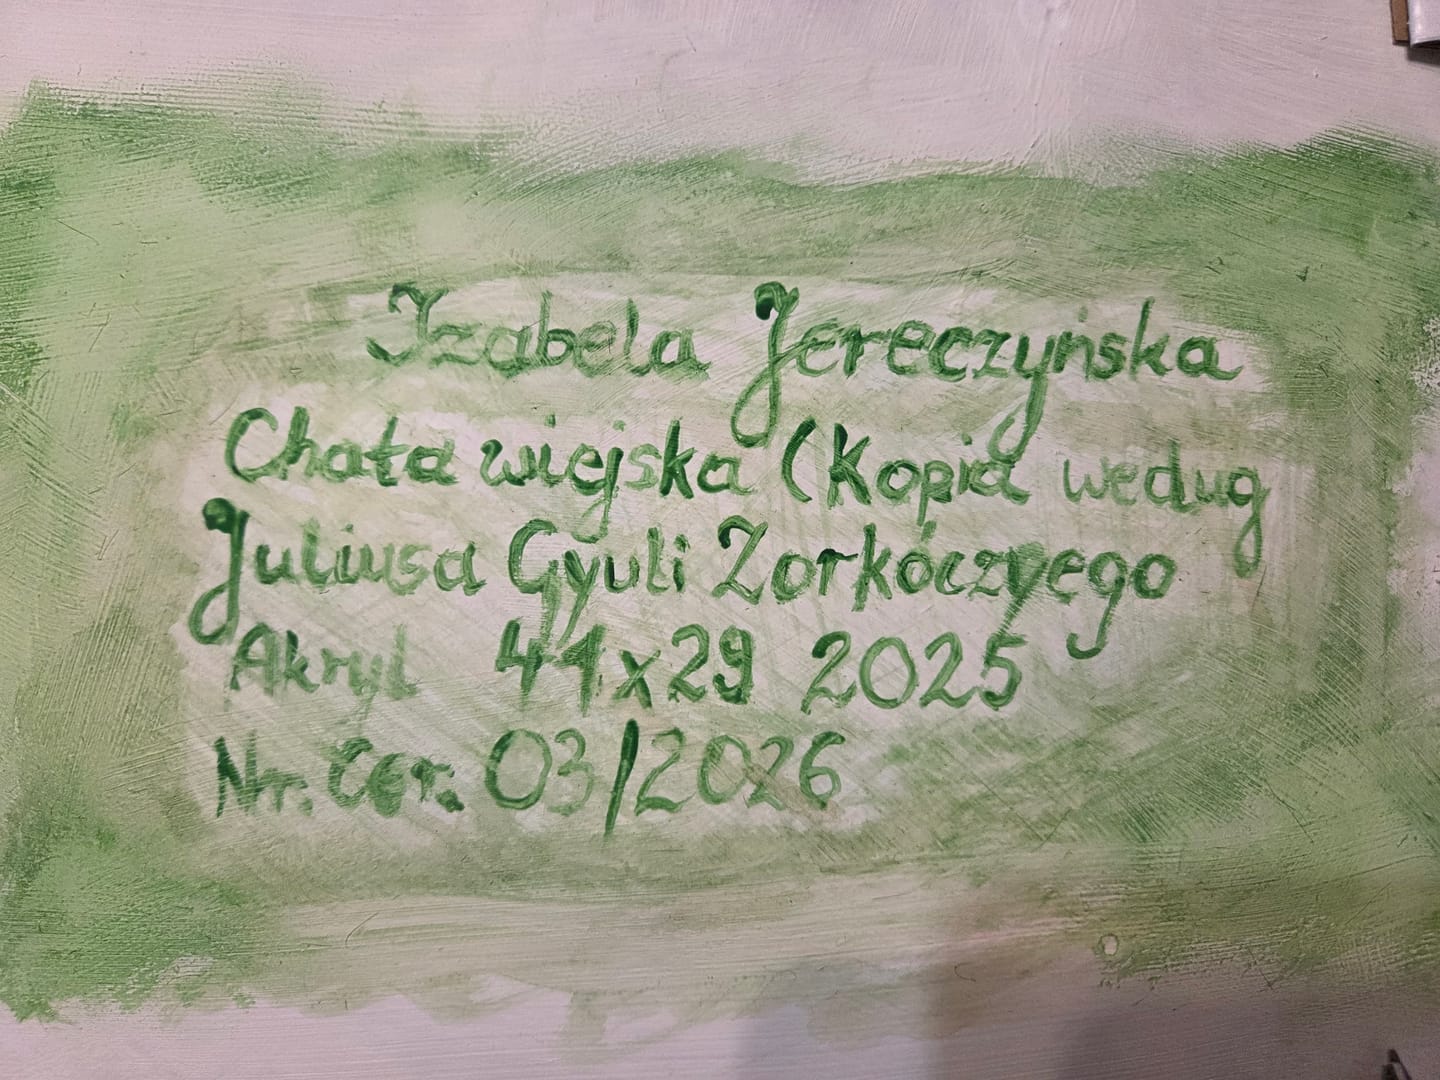 Izabela Jereczyńska
Chata wiejska (Kopia według
Juliusa Gyuli Zorkóczyego
Akryl 41x29 2025
Nr. Cer. 03/2026